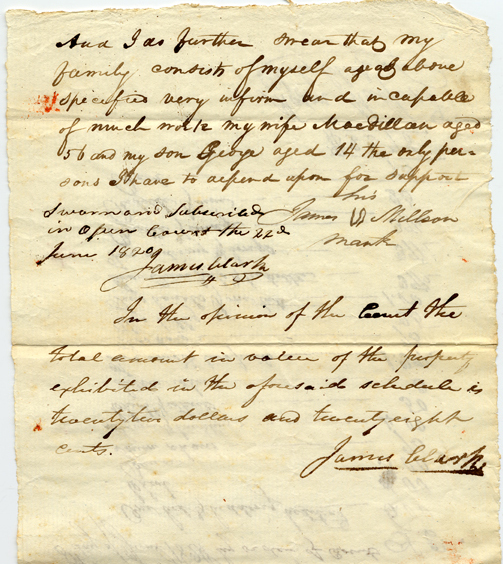 And I do further swear that my
family consists of myself aged above
specified very infirm and incapable
of much work my wife aged
56 and my son George aged 14 the only per-
sons I have to depend upon for support
his
Sworn and Subscribed James Millson
in Open Court the 22d mark
June 1820
James Clark
In the opinion of the Court the
total amount in value of the property
exhibited in the aforesaid schedule is
twenty two dollars and twenty eight
cents.
James Clark